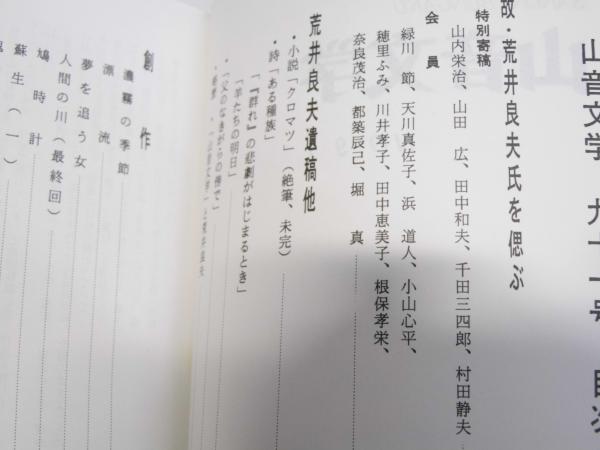 山音文学 九十一号 目次
故・荒井良夫氏を偲ぶ
特別寄稿
山内栄治、山田 広、田中和夫、千田三四郎、村田静夫
会員
緑川 節、天川真佐子、浜 道人、小山心平、
穂里ふみ、川井孝子、田中恵美子、根保孝栄、
奈良茂治、都築辰己、堀 真
荒井良夫遺稿他
・小説「クロマツ」(絶筆、未完)
・詩「ある種族」
「『群れ』の悲劇がはじまるとき」
「羊たちの明日」
・「父のなきがらの傍で」
創作
濃霧の季節
源流
夢を追う女
人間の川(最終回)
鳩時計
蘇生(一)